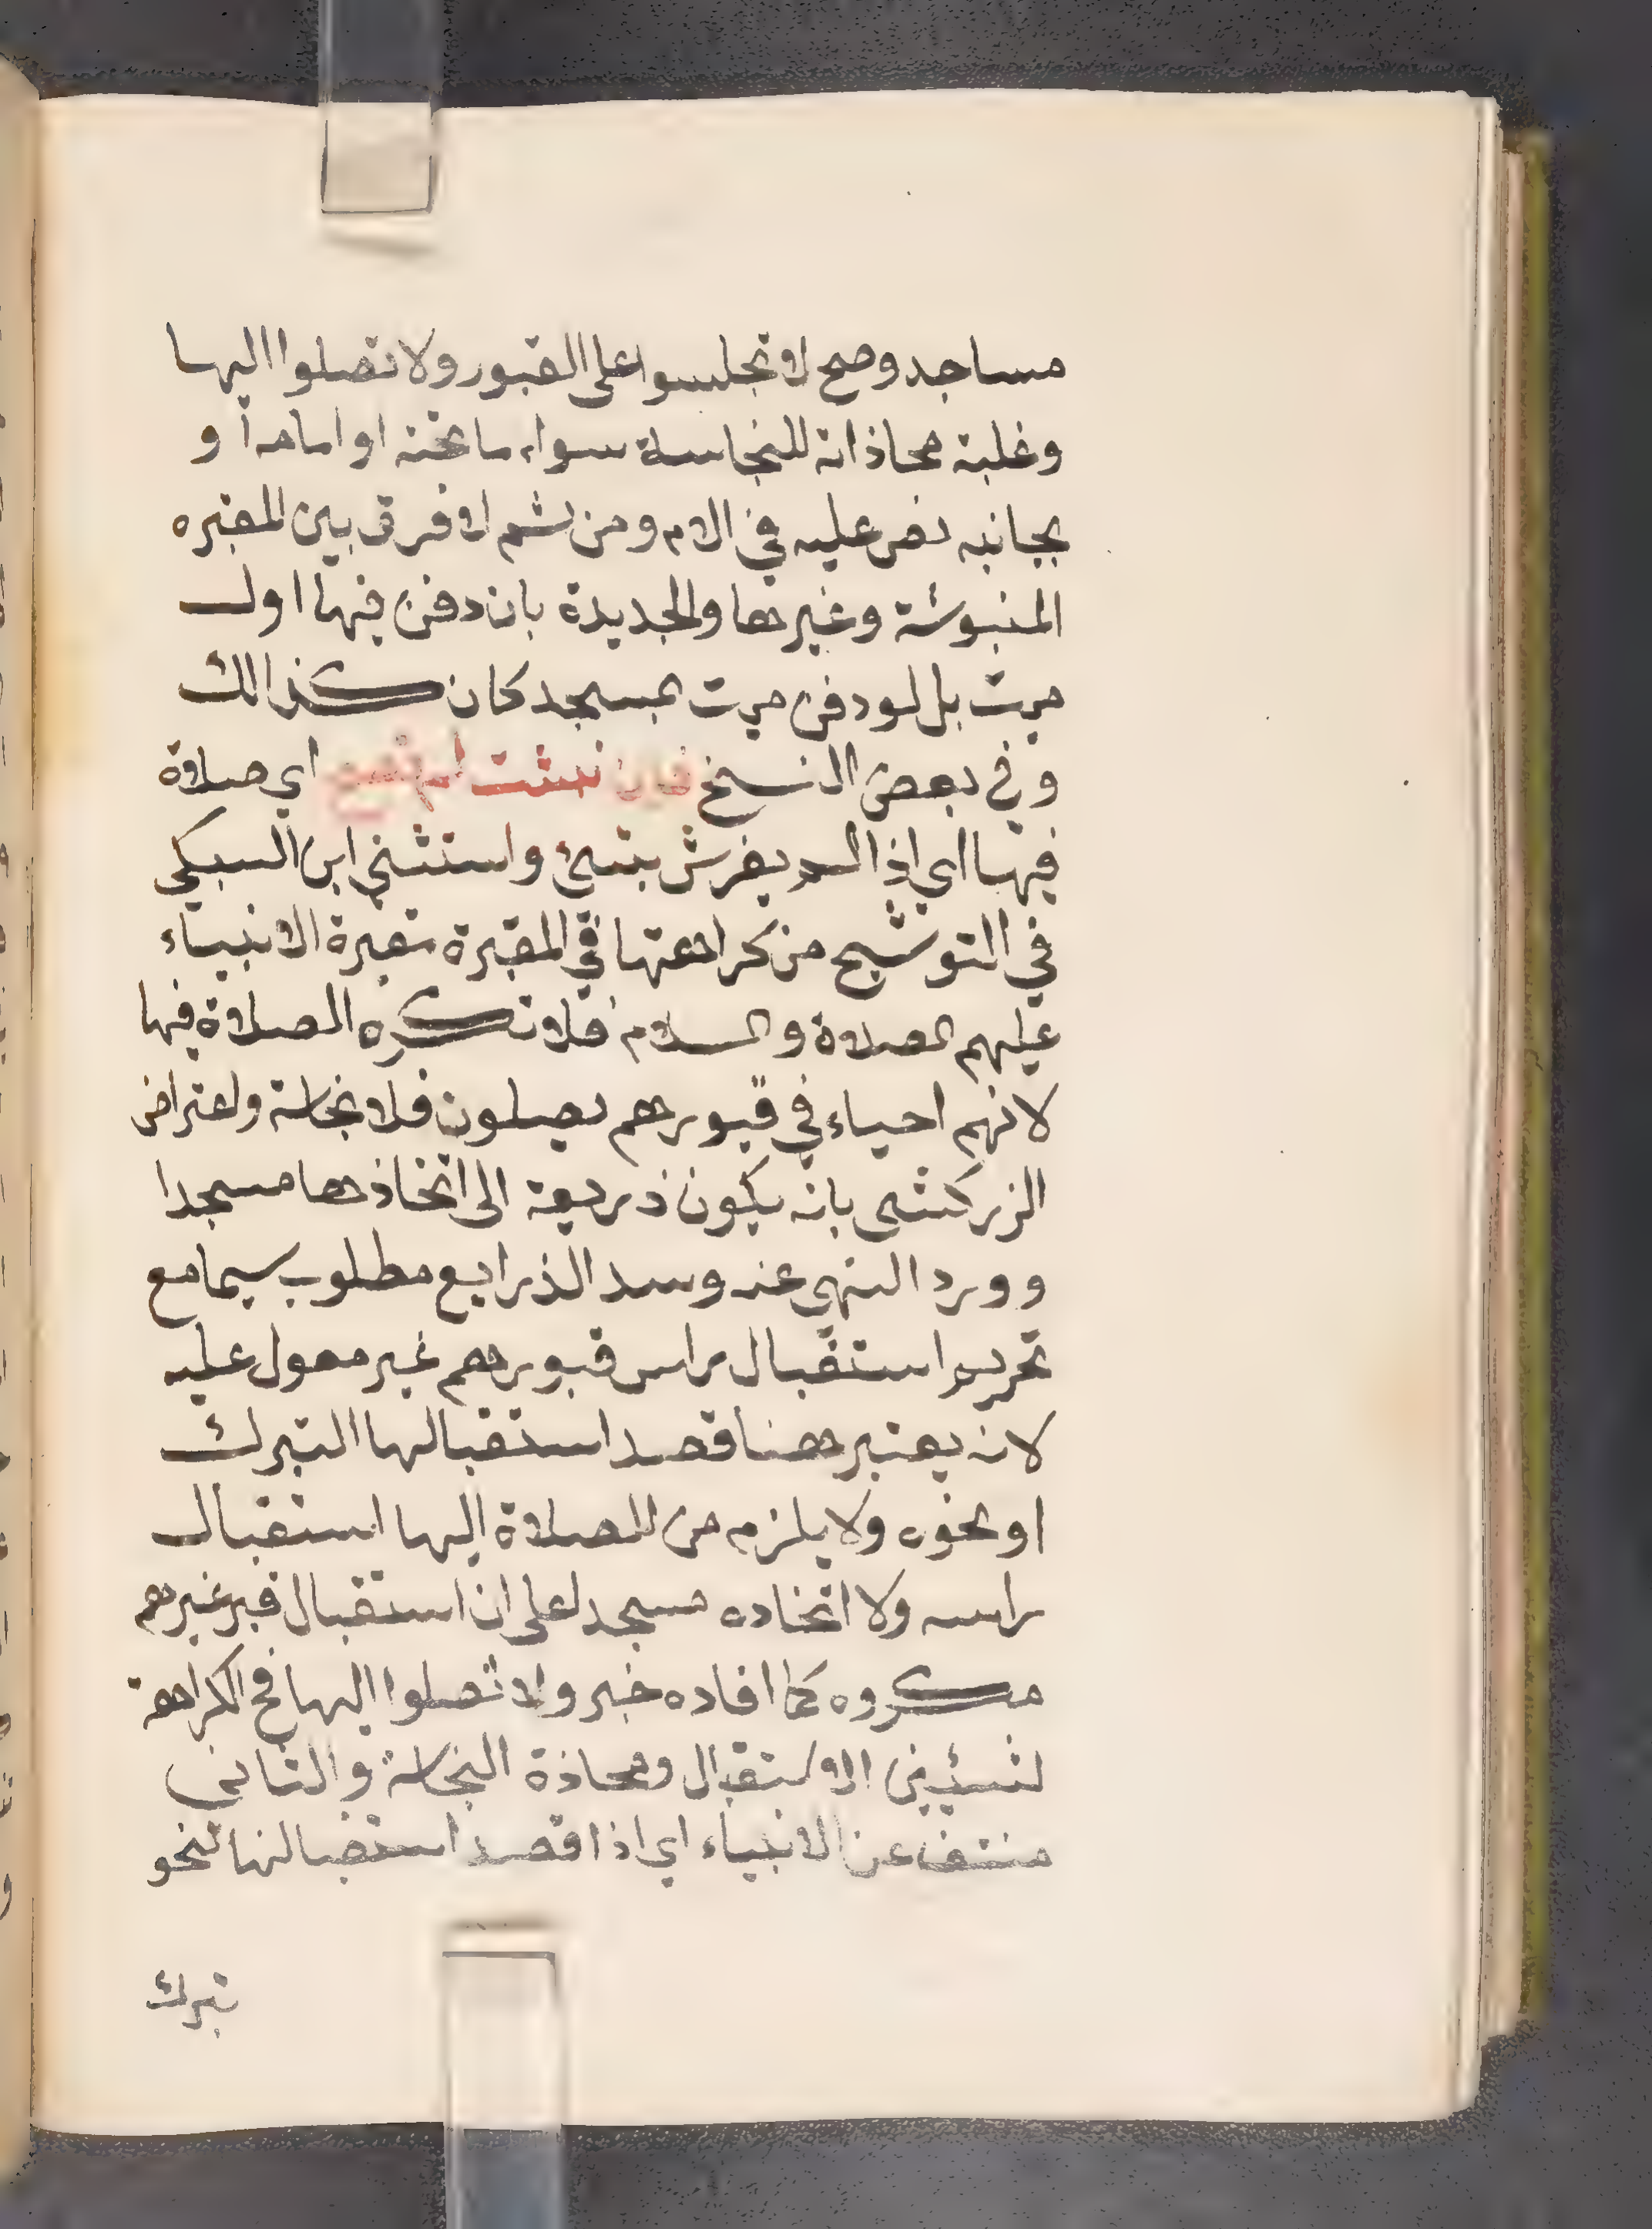 مساجد وصح لا تجلسوا على القبور ولا تصلوا اليها
وغلبة محاذاته للنجاسة سواء ما تحته او امامه أ و
بجانبه نص عليه في الام ومن ثم لا فرق بين المقبره
المنبوشة وغيرها والجديدة بان دفن فيها اول
ميت بل لو دفن ميت بمسجد كان كذالك
وفي بعض النسخ فان نبشت لم تصح اي صلاة
فيها اي اذا لم يفرش بشئ واستثنى ابن السبكي
في التوشيح من كراهتها في المقبرة مقبرة الانبياء
عليهم الصلاة والسلام فلا تكره الصلاة فيها
لانهم احياء في قبورهم يصلون فلا نجاسة واعتراض
الزركشى بانه يكون ذريعة الى اتخاذها مسجدا
وورد النهي عنه وسد الذرايع مطلوب سيما مع
تحريم استقبال راس قبورهم غير معول عليه
لانه يعتبر هنا قصد استقبالها التبرك
او نحوه ولا يلزم من الصلاة اليها استقبال
راسه ولا اتخاده مسجد لعلى ان استقبال قبر غيرهم
مكروه كما افاده خبر ولا تصلوا اليها فح الكراهة
لشيئين الاستقبال ومحاذة النجاسة والثاني
منتف عن الانبياء اي اذا قصد استقبالها لنحو
تبرك